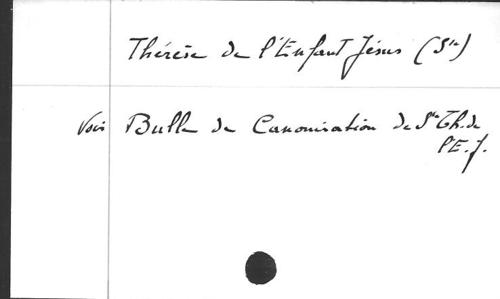 Thérèse de l'Enfant Jésus (Ste)
Voir Bulle de Canonisation de Ste Th. de
l'E. J.